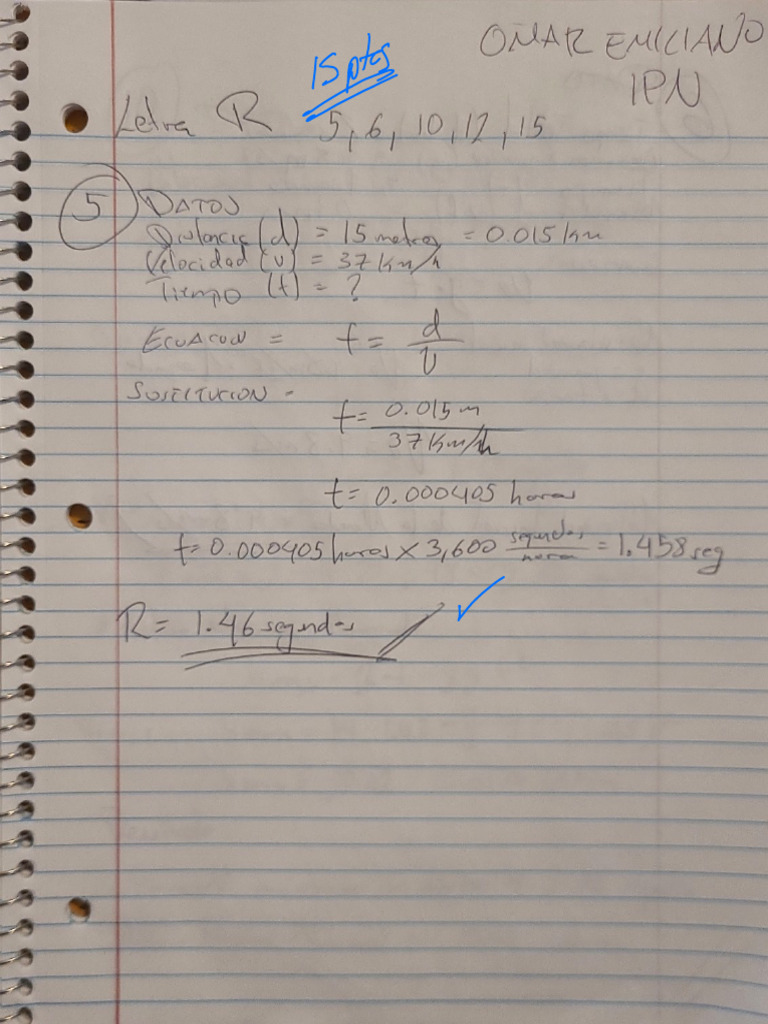 OMAR EMILIANO
IPN
15 ptos
Letra R 5, 6, 10, 12, 15
5 DATOS
Distancia (d) = 15 metros = 0.015 km
Velocidad (v) = 37 Km/h
Tiempo (t) = ?
ECUACION = t = d / v
SUSTITUCION =
t = 0.015 m / 37 Km/h
t = 0.000405 horas
t = 0.000405 horas x 3,600 segundos / hora = 1.458 seg
R = 1.46 segundos ✓